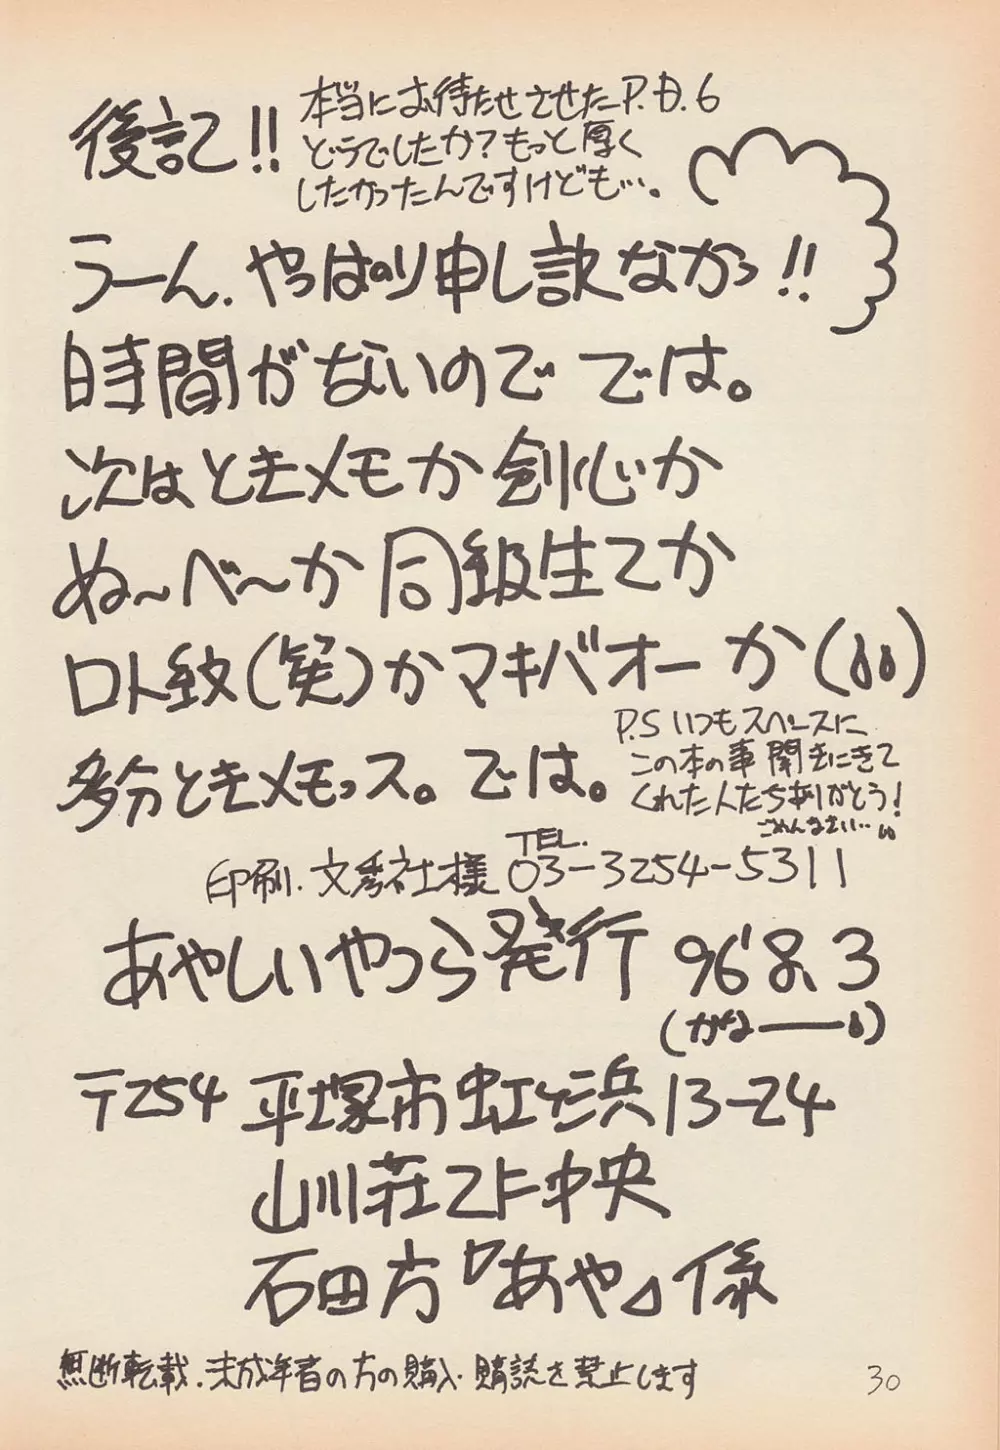 後記!!
本当にお待たせさせたP.D.6
どうでしたか?もっと厚く
したかったんですけども…。
うーん、やっぱり申し訳なかっ!!
時間がないので では。
次はときメモか剣心か
ぬ~べ~か同級生2か
ロト紋(笑)かマキバオーか( )
多分ときメモっス。では。
P.S いつもスペースに
この本の事聞きにきて
くれた人たちありがとう!
ごめんなさい…
TEL.
印刷.文秀社様 03-3254-5311
あやしいやつら発行 96'8、3
(かな——)
〒254 平塚市虹ヶ浜13-24
山川荘2F中央
石田方『あや』係
無断転載.未成年者の方の購入.購読を禁止します
30